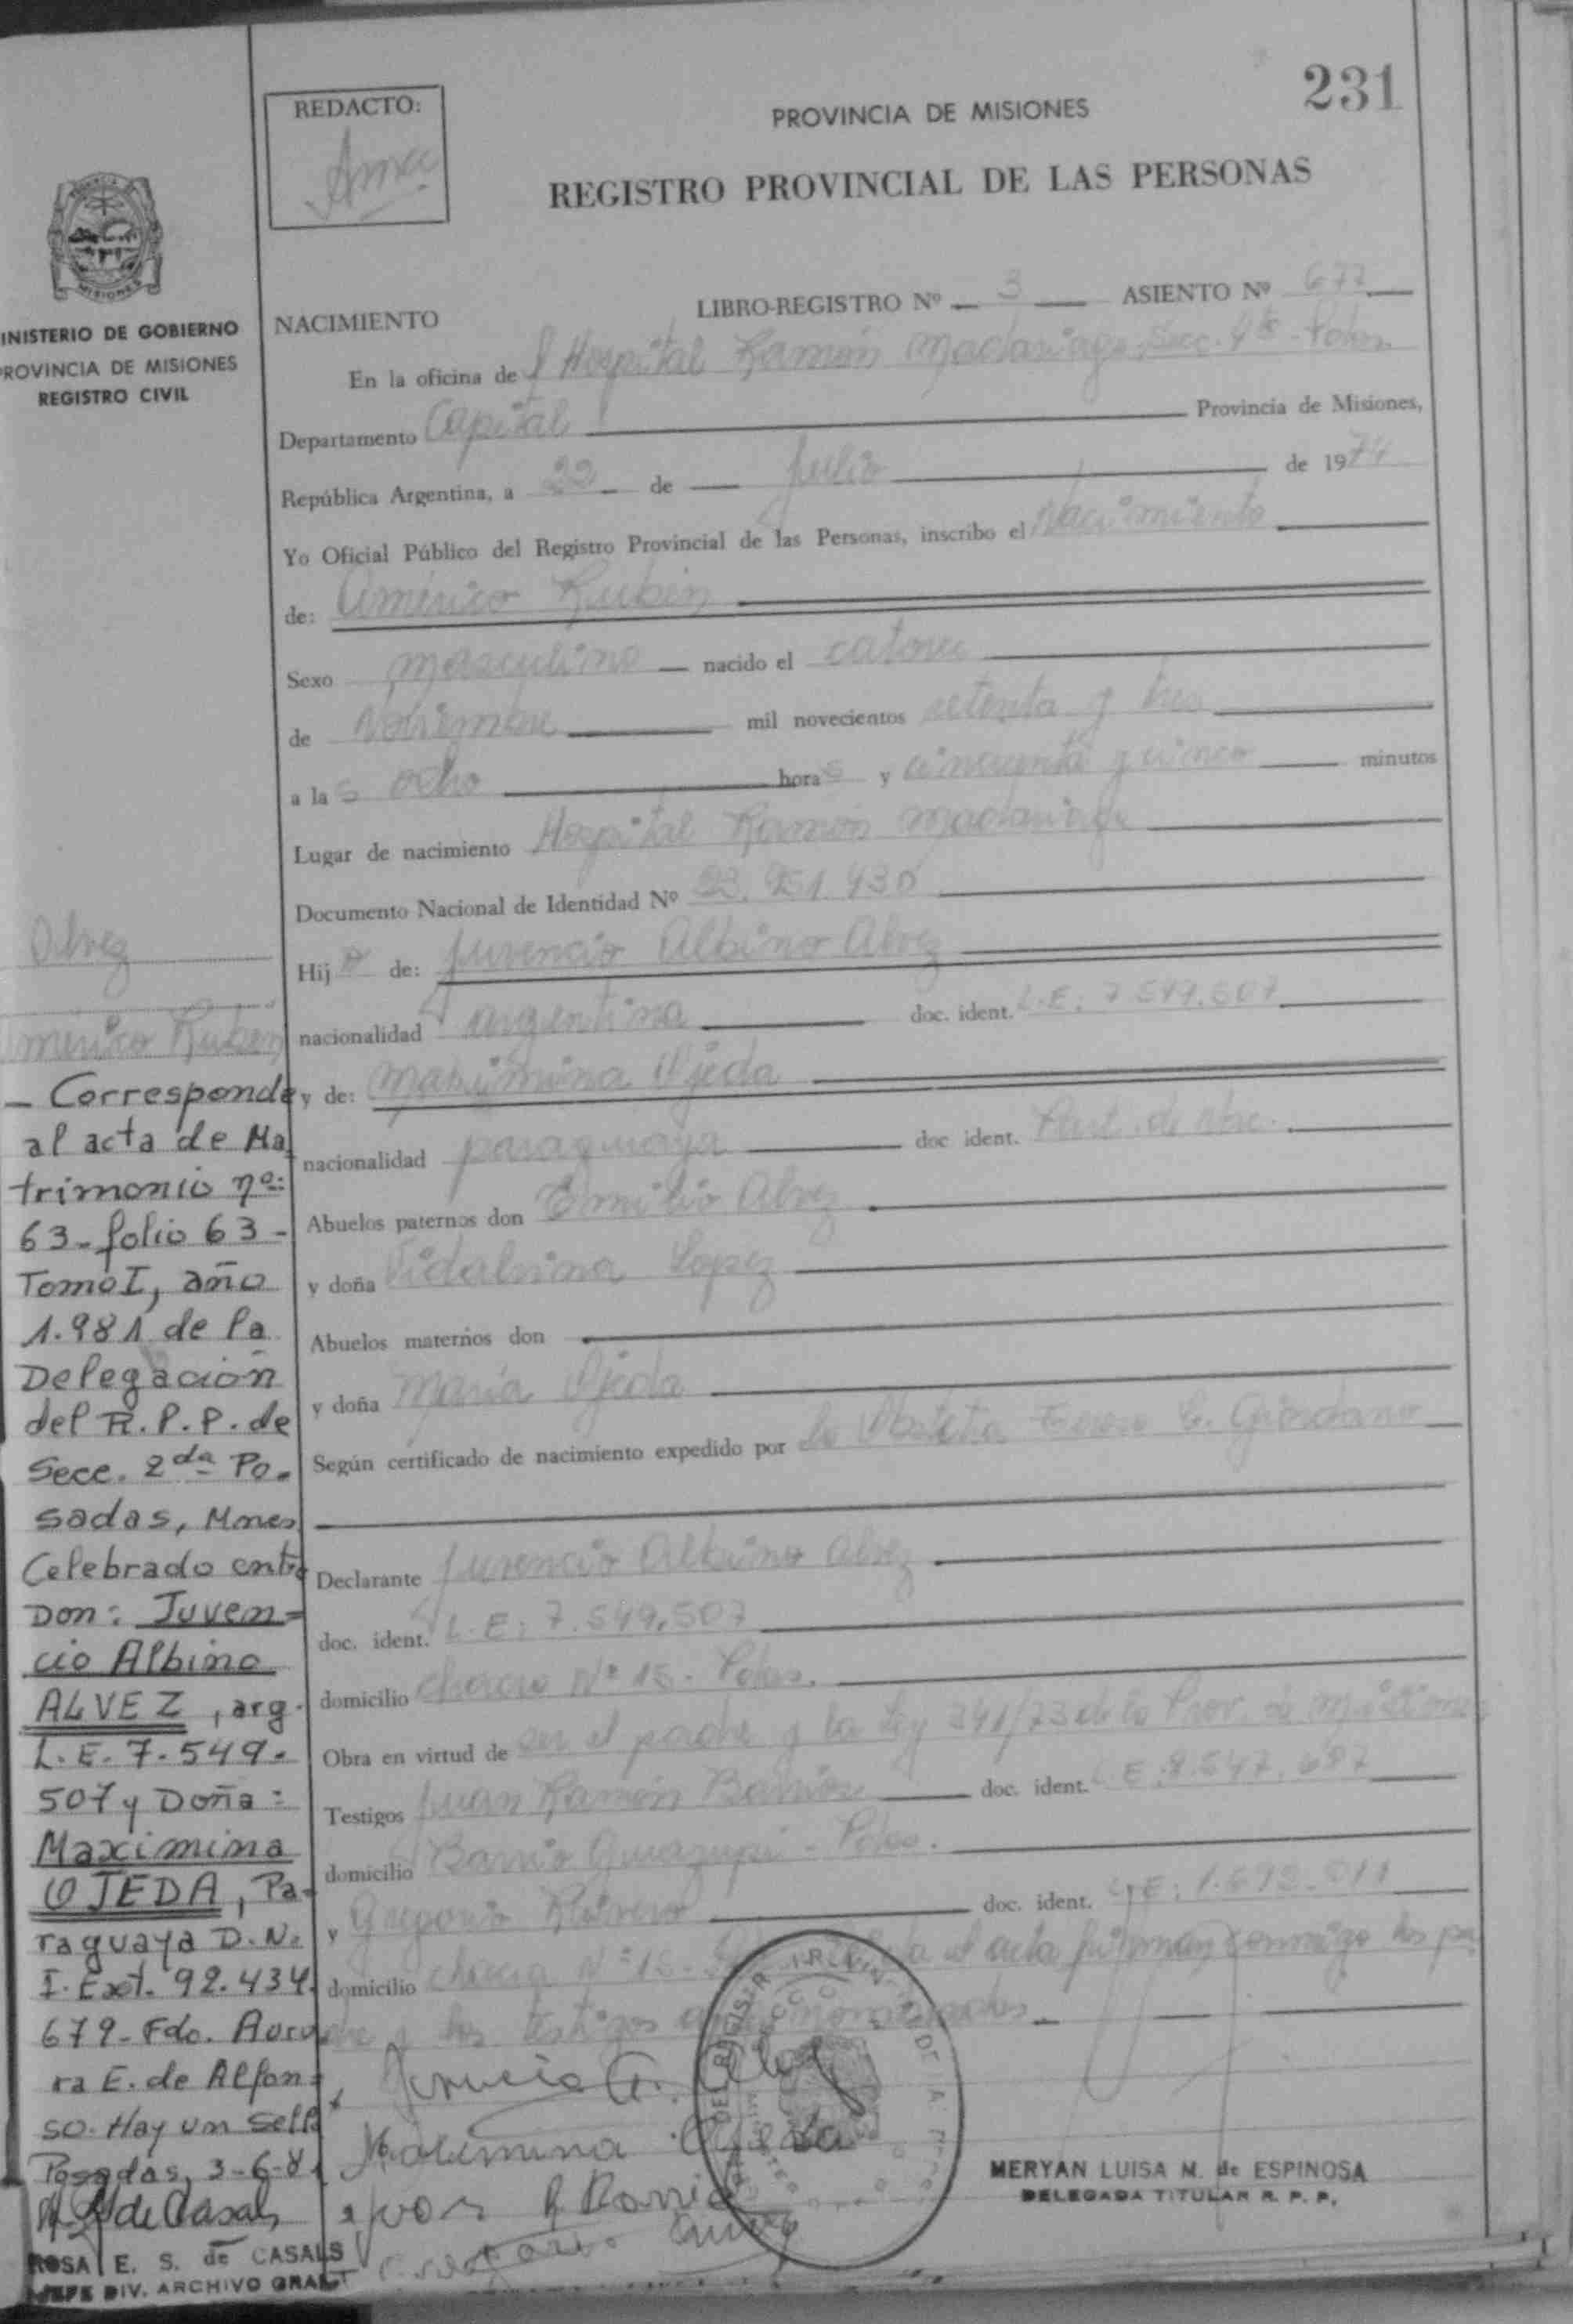 231
REDACTO:
PROVINCIA DE MISIONES
REGISTRO PROVINCIAL DE LAS PERSONAS
MISIONES
INISTERIO DE GOBIERNO
PROVINCIA DE MISIONES
REGISTRO CIVIL
NACIMIENTO
LIBRO-REGISTRO Nº 3 ASIENTO Nº 677
En la oficina de l Hospital Ramón Madariaga, Secc. 4ta - Pdas.
Departamento Capital Provincia de Misiones,
República Argentina, a 22 de Julio de 1974
Yo Oficial Público del Registro Provincial de las Personas, inscribo el Nacimiento
de: Américo Rubén
Sexo masculino nacido el catorce
de Noviembre mil novecientos setenta y tres
a las ocho horas y cincuenta y cinco minutos
Lugar de nacimiento Hospital Ramón Madariaga
Documento Nacional de Identidad Nº 23. 951. 430
Hijo de: Juvencio Albino Alvez
nacionalidad argentina doc. ident. L.E: 7.549.507
y de: Maximina Ojeda
nacionalidad paraguaya doc ident. Part. de Nac.
Abuelos paternos don Emilio Alvez
y doña Lopez
Abuelos maternos don
y doña María Ojeda
Según certificado de nacimiento expedido por la Obstetra Giordano
Declarante Juvencio Albino Alvez
doc. ident. L.E: 7.549.507
domicilio chacra Nº 15 - Pdas.
Obra en virtud de ser el padre y la Ley 341/73 de la Prov. de Misiones
Testigos Juan Ramón Barrios doc. ident. L.E: 8.547.687
domicilio Barrio - Pdas.
y Gregorio doc. ident. L.E: 1.693.011
domicilio chacra Nº 15 - el acta firman conmigo los pa
dre y los testigos
Alvez
mérico Ruben
– Corresponde
al acta de Ma
trimonio nº:
63 - folio 63 -
Tomo I, año
1.981 de la
Delegación
del R.P.P. de
Secc. 2da Po-
sadas, Mnes
Celebrado entre
Don: Juven=
cio Albino
ALVEZ, arg.
L.E. 7.549.
507 y Doña:
Maximina
OJEDA, Pa-
raguaya D.N.
I. Ext. 92.434.
679 - Fdo. Auro
ra E. de Alfon=
so. Hay un sello
Posadas, 3-6-8
de Casals
ROSA E. S. de CASALS
JEFE DIV. ARCHIVO GRAL
Maximina Ojeda
MERYAN LUISA M. de ESPINOSA
DELEGADA TITULAR R. P. P.